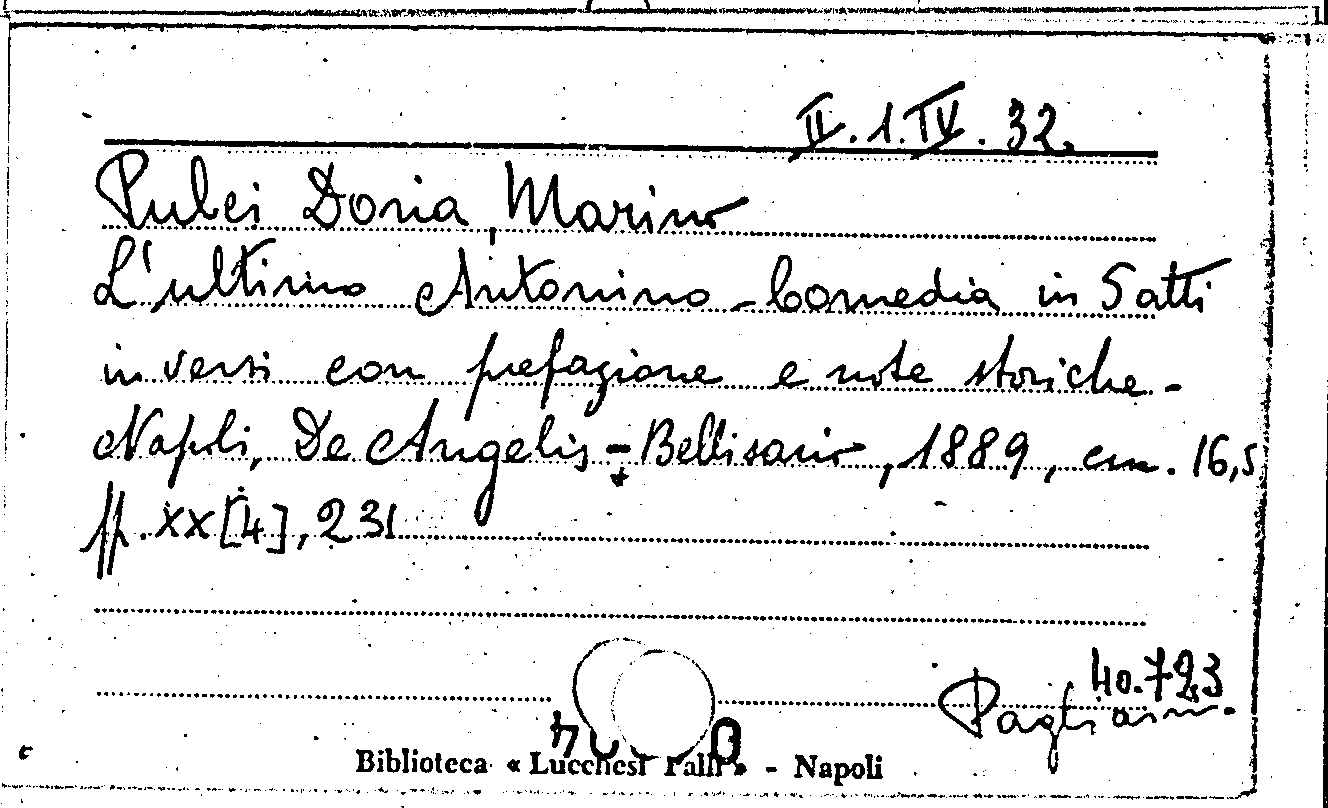 II.1.IV.32.
Pulci Doria, Marino
L'ultimo Antonino - Comedia in 5 atti
in versi con prefazione e note storiche -
Napoli, De Angelis - Bellisario, 1889, cm. 16,5
pp. XX[4], 231
40.723
Biblioteca « Lucchesi Palli » - Napoli